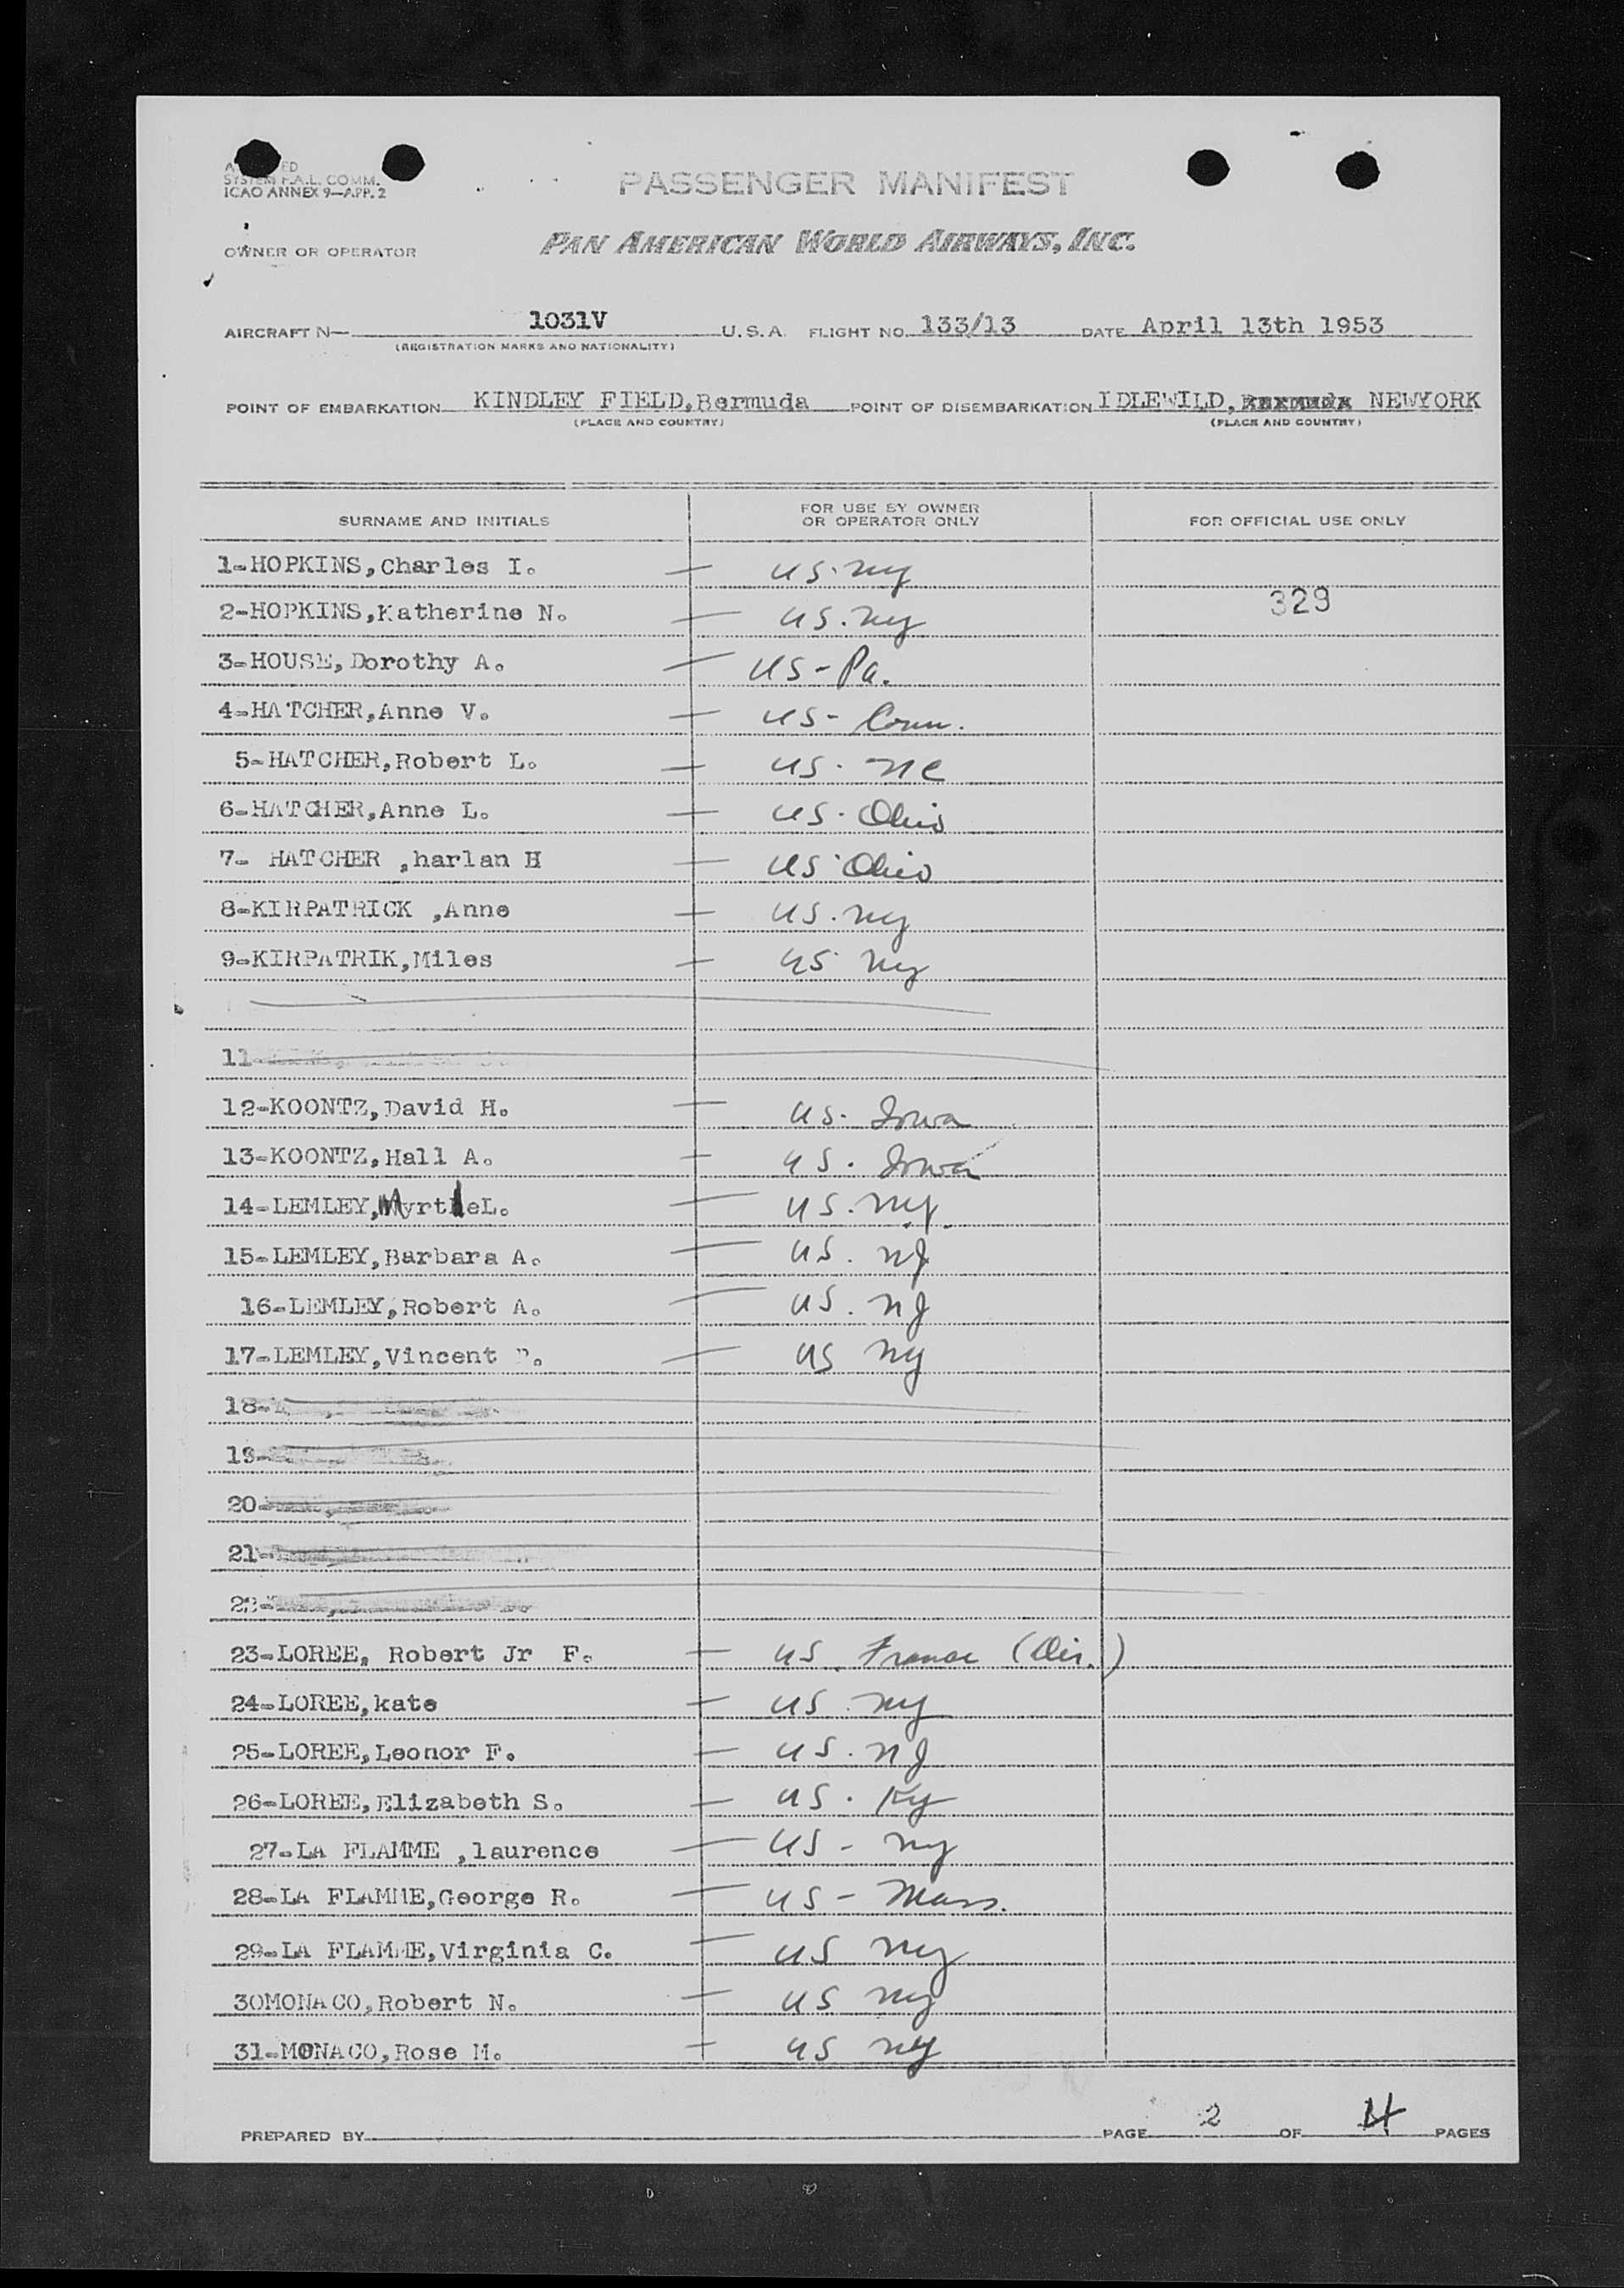 ED
SYSTEM F.A.L. COMM.
ICAO ANNEX 9—APP. 2
PASSENGER MANIFEST
OWNER OR OPERATOR PAN AMERICAN WORLD AIRWAYS, INC.
AIRCRAFT N— 1031V U.S.A. FLIGHT NO. 133/13 DATE April 13th 1953
(REGISTRATION MARKS AND NATIONALITY)
POINT OF EMBARKATION KINDLEY FIELD,Bermuda POINT OF DISEMBARKATION IDLEWILD, NEWYORK
(PLACE AND COUNTRY) (PLACE AND COUNTRY)
SURNAME AND INITIALS FOR USE BY OWNER OR OPERATOR ONLY FOR OFFICIAL USE ONLY
1-HOPKINS,Charles I. — US. NY
2-HOPKINS,Katherine N. — US. NY 329
3-HOUSE,Dorothy A. — US - Pa.
4-HATCHER,Anne V. — US - Conn.
5-HATCHER,Robert L. — US. NC
6-HATCHER,Anne L. — US. Ohio
7- HATCHER ,harlan H — US Ohio
8-KIRPATRICK ,Anne — US. NY
9-KIRPATRIK,Miles — US NY
11-
12-KOONTZ,David H. — US. Iowa
13-KOONTZ,Hall A. — US. Iowa
14-LEMLEY,MyrtleL. — US. NY.
15-LEMLEY,Barbara A. — US. NJ
16-LEMLEY,Robert A. — US. NJ
17-LEMLEY,Vincent — US NY
18-
19-
20-
21-
22-
23-LOREE, Robert Jr F. — US France (Der.)
24-LOREE,kate — US. NY
25-LOREE,Leonor F. — US. NJ
26-LOREE,Elizabeth S. — US. Ky
27-LA FLAMME ,laurence — US - NY
28-LA FLAMME,George R. — US - Mass.
29-LA FLAMME,Virginia C. — US NY
30MONACO,Robert N. — US NY
31-MONACO,Rose M. — US NY
PREPARED BY PAGE 2 OF 4 PAGES